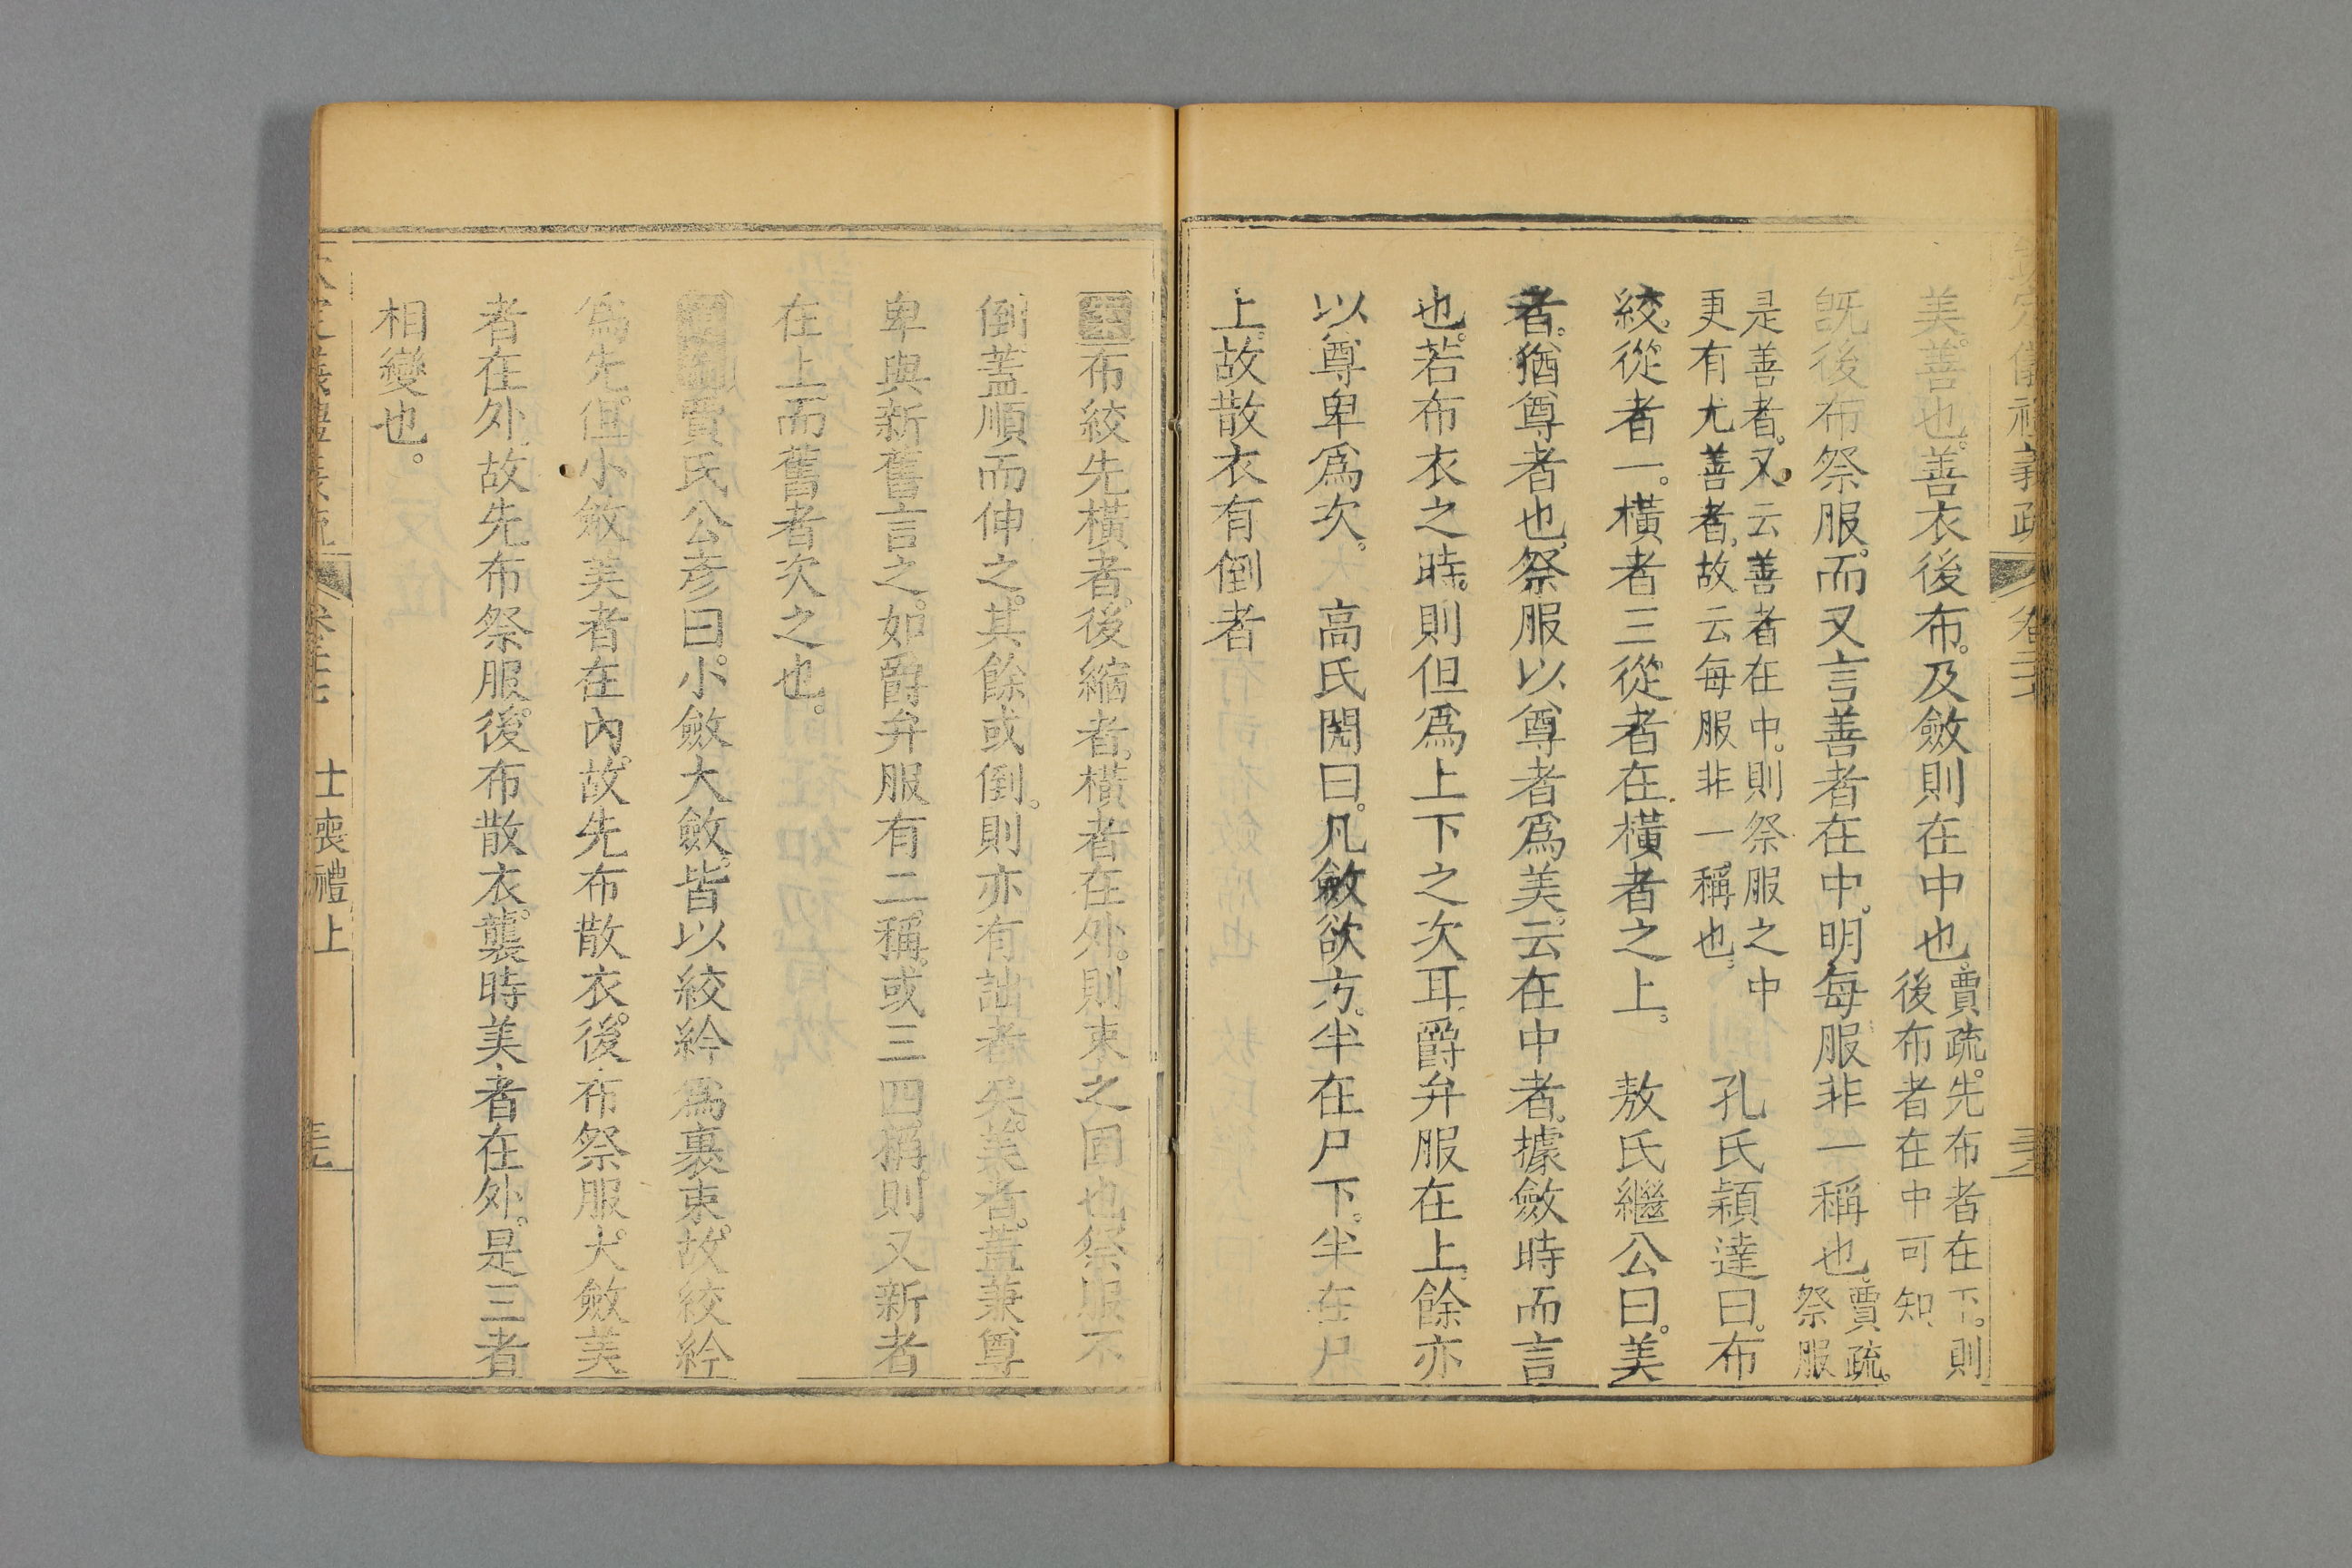 美。善也。善衣後布。及斂則在中也。賈疏。先布者在下。則
後布者在中可知
旣後布祭服。而又言善者在中。明每服非一稱也。賈疏。
祭服
是善者。又云善者在中。則祭服之中
更有尤善者。故云每服非一稱也。
孔氏穎達曰。布
絞。從者一。橫者三。從者在橫者之上。　敖氏繼公曰。美
者。猶尊者也。祭服以尊者爲美。云在中者。據斂時而言
也。若布衣之時。則但爲上下之次耳。爵弁服在上。餘亦
以尊卑爲次。　高氏閌曰。凡斂欲方。半在尸下。半在尸
上。故散衣有倒者
布絞先橫者。後縮者。橫者在外。則束之固也。祭服不
倒。蓋順而伸之。其餘或倒。則亦有詘者矣。美者。蓋兼尊
卑與新舊言之。如爵弁服有二稱。或三四稱。則又新者
在上而舊者次之也。
賈氏公彥曰。小斂大斂。皆以絞紟爲裹束。故絞紟
爲先。但小斂美者在內。故先布散衣。後布祭服。大斂美
者在外。故先布祭服。後布散衣。襲時美者在外。是三者
相變也。
士喪禮上